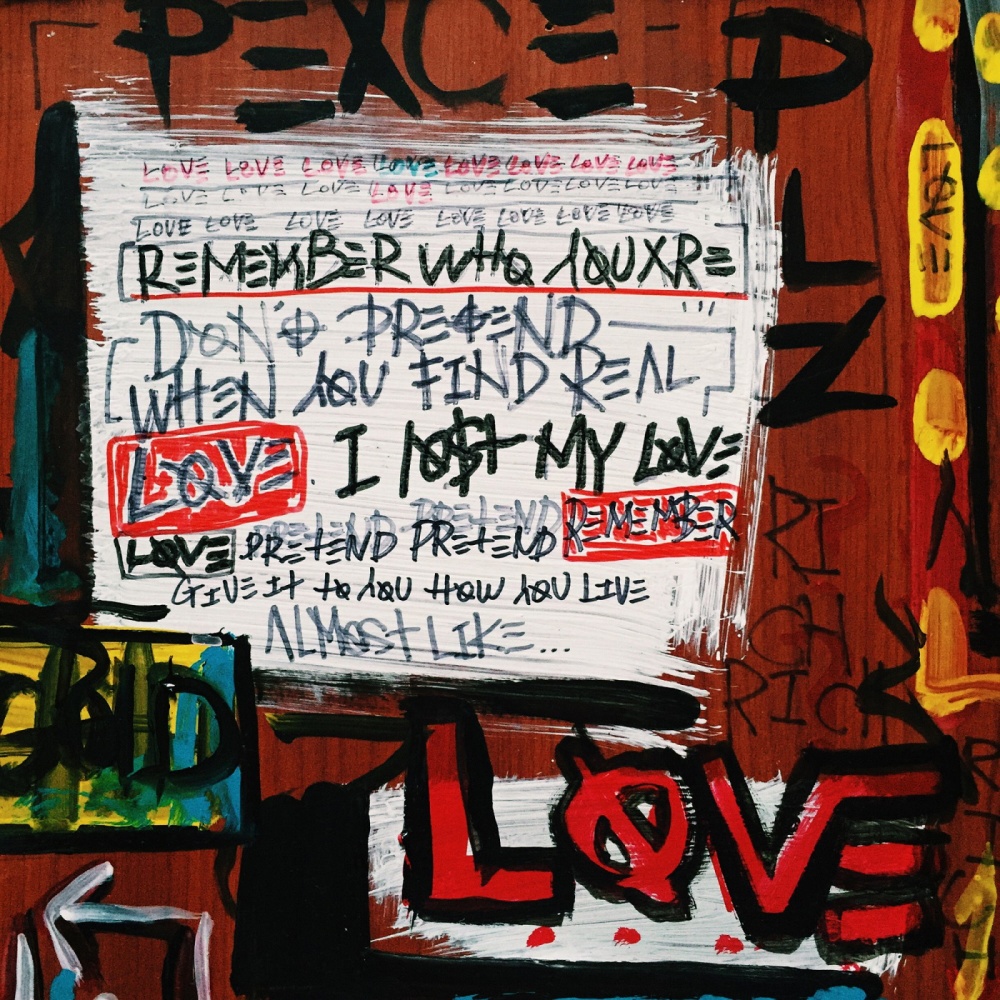 PEXCE
PLZ
LOVE LOVE LOVE LOVE LOVE LOVE LOVE LOVE
LOVE LOVE LOVE LOVE LOVE LOVE LOVE LOVE
LOVE LOVE LOVE LOVE LOVE LOVE LOVE LOVE
REMEMBER WHO YOUXRE
DON'T PRETEND
WHEN YOU FIND REAL
LOVE I LO$T MY LOVE
LOVE PRETEND PRETEND REMEMBER
GIVE IT TO YOU HOW YOU LIVE
ALMOST LIKE...
LOVE
RICH
LOVE